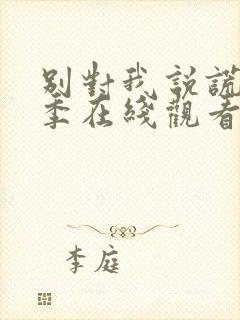 別對我說謊
季在綫觀看
李庭